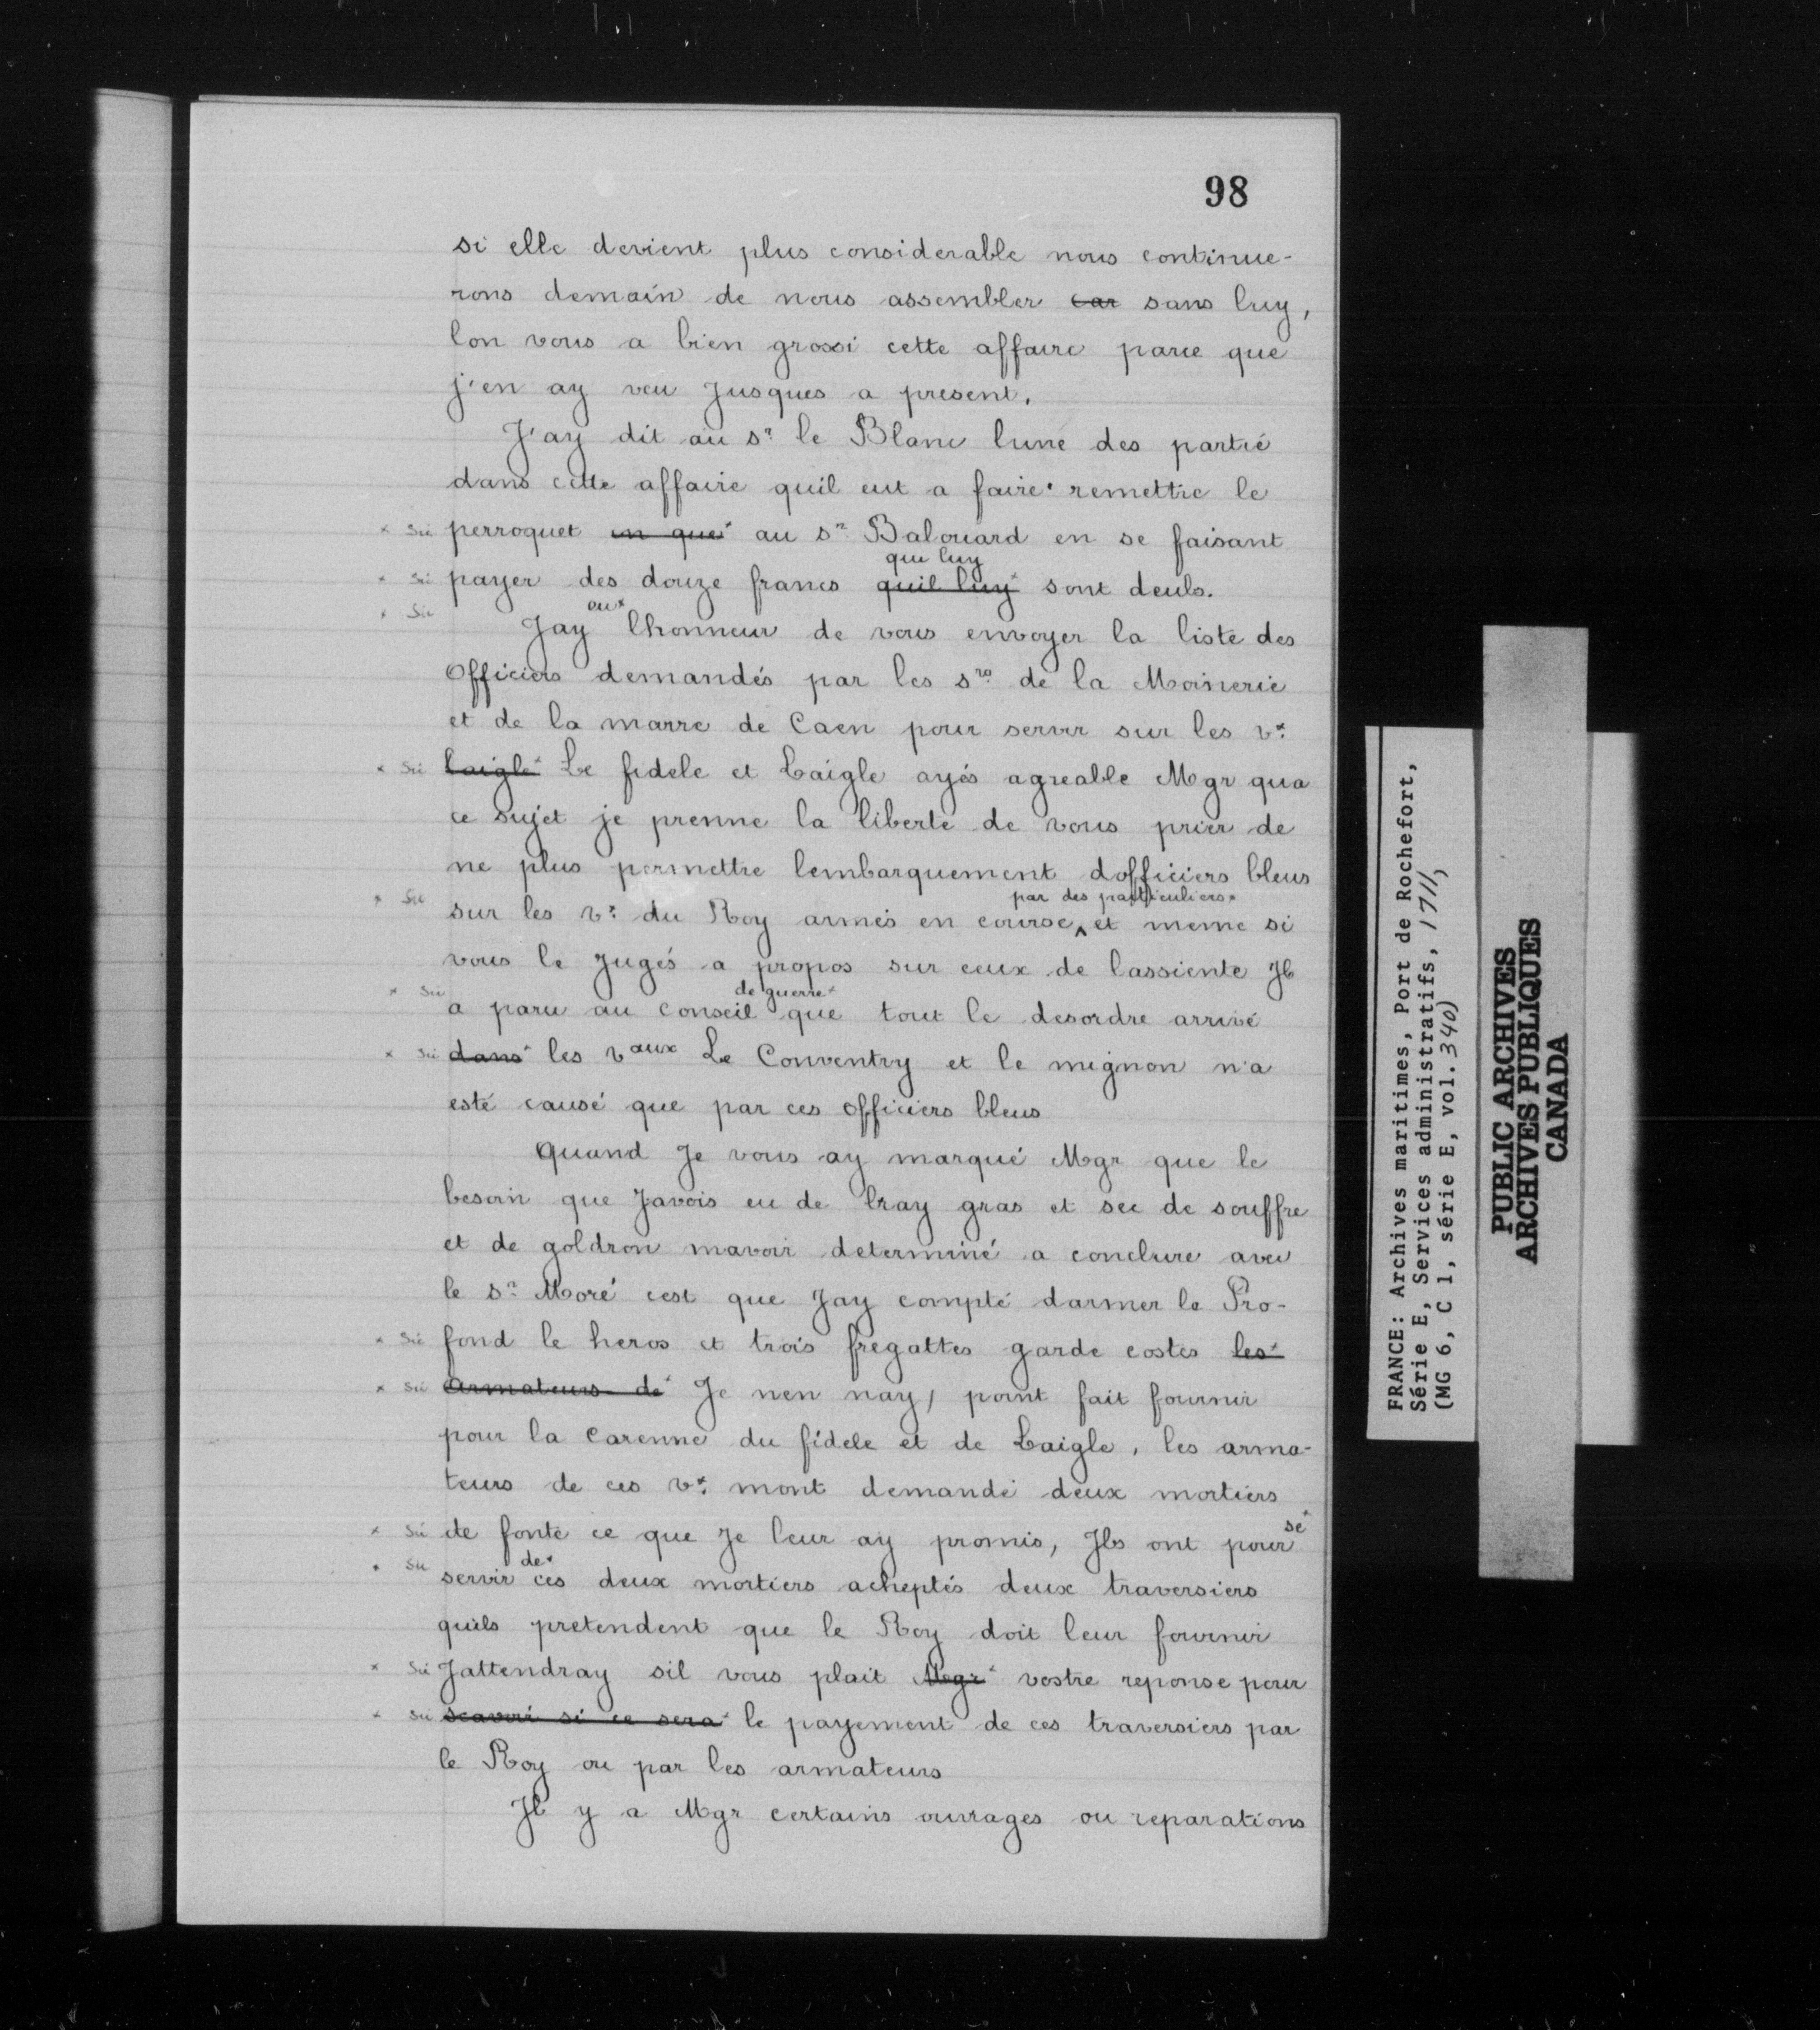 98
si elle devient plus considerable nous continue-
rons demain de nous assembler car sans luy,
lon vous a bien grossi cette affaire parce que
j'en ay veu Jusques a present.
J'ay dit au sr le Blanc lune des partié
dans cette affaire quil eut a faire remettre le
* sic perroquet en que* au sr Balouard en se faisant
que luy
* sic payer des douze francs quil luy* sont deuls.
* sic Jay au* lhonneur de vous envoyer la liste des
Officiers demandés par les srs de la Moinerie
et de la marre de Caen pour servir sur les vx
* sic Laigle* Le fidele et Laigle ayés agreable Mgr qua
ce sujet je prenne la liberté de vous prier de
ne plus permettre lembarquement dofficiers bleus
par des particuliers*
* sic sur les vx du Roy armés en course ^ et meme si
vous le Jugés a propos sur ceux de lassiente Jl
de guerre*
* sic a paru au conseil que tout le desordre arrivé
* sic dans* les vaux Le Conventry et le mignon n'a
esté causé que par ces officiers bleus
Quand Je vous ay marqué Mgr que le
besoin que Javois eu de bray gras et sec de souffre
et de goldron mavoir determiné a conclure avec
le sr Moré cest que Jay compté darmer le Pro-
* sic fond le heros et trois fregattes garde costes les*
* sic Armateurs de* Je nen nay, point fait fournir
pour la Carenne du fidele et de Laigle, les arma-
teurs de ces vx mont demandé deux mortiers
* sic de fonte ce que Je leur ay promis, Jls ont pour se*
* sic servir de* ces deux mortiers acheptés deux traversiers
quils pretendent que le Roy doit leur fournir
* sic Jattendray sil vous plait Mgr* vostre reponse pour
* sic scavoir si ce sera* le payement de ces traversiers par
le Roy ou par les armateurs
Jl y a Mgr certains ouvrages ou reparations
FRANCE: Archives maritimes, Port de Rochefort,
Série E, Services administratifs, 1711,
(MG 6, C 1, série E, vol. 340)
PUBLIC ARCHIVES
ARCHIVES PUBLIQUES
CANADA